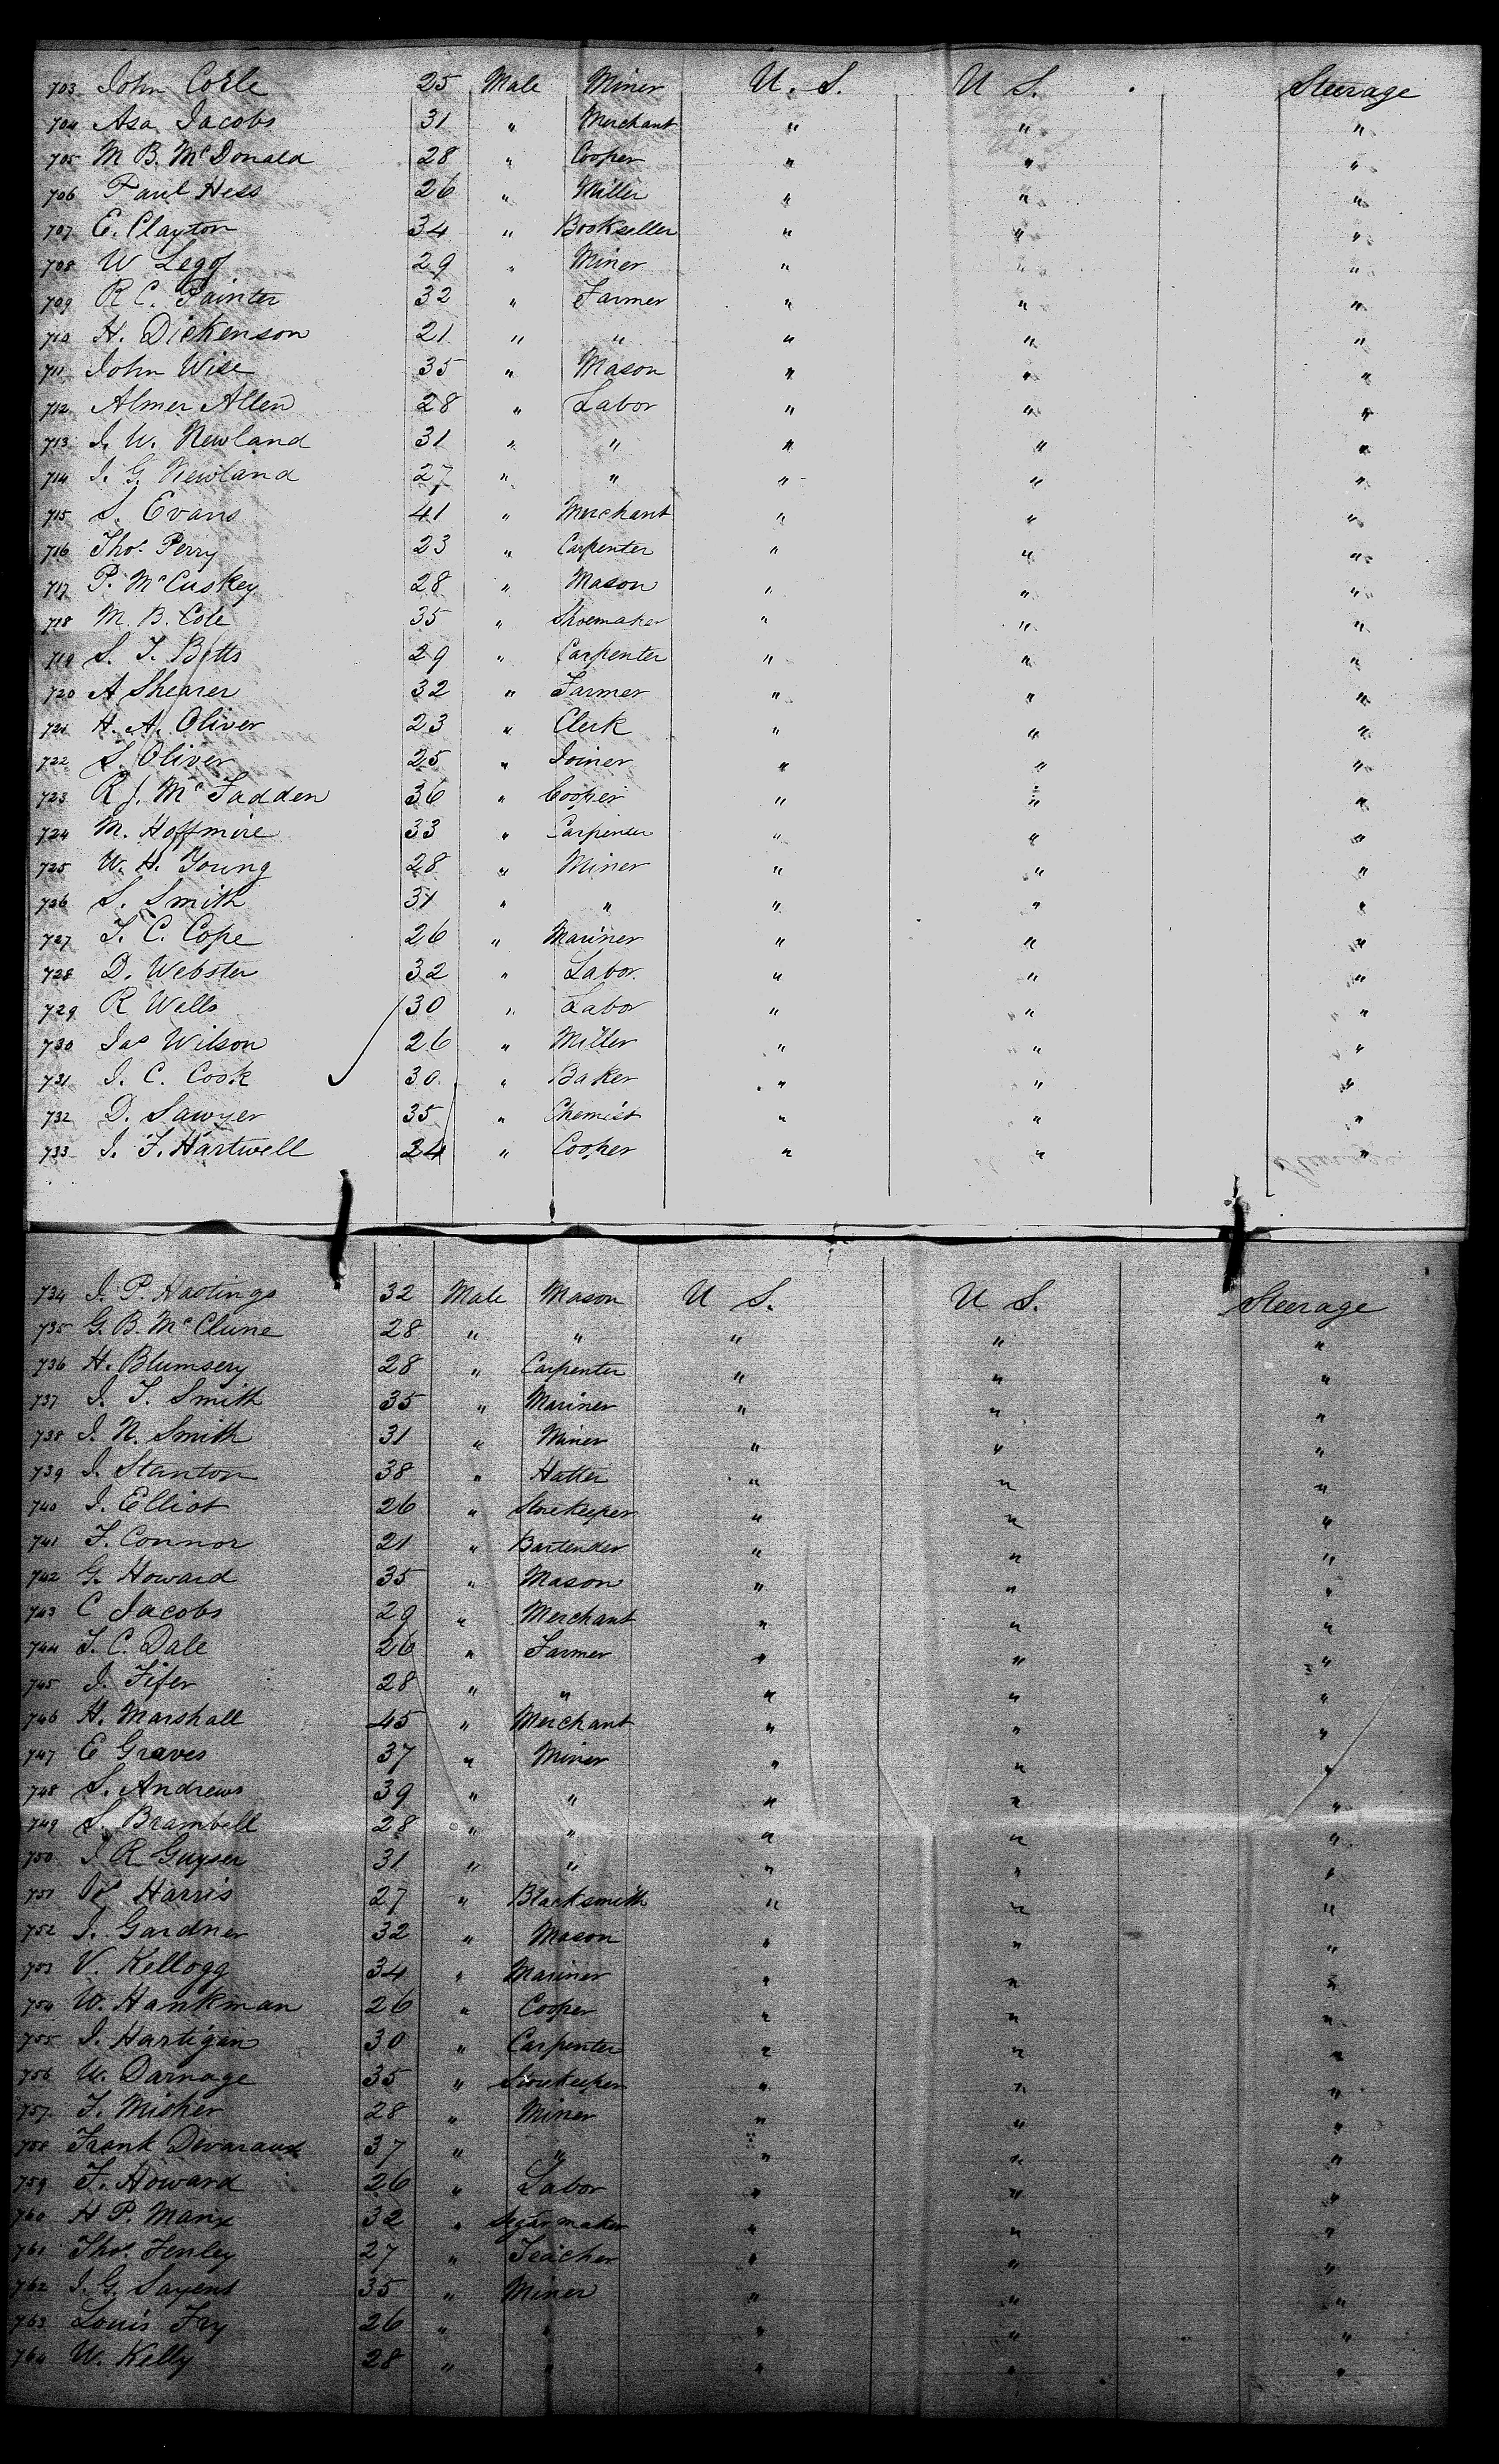 703 John Corle 25 Male Miner U. S. U S. Steerage
704 Asa Jacobs 31 " Merchant " " "
705 M B. McDonald 28 " Cooper " " "
706 Paul Hess 26 " Miller " " "
707 E. Clayton 34 " Bookseller " " "
708 W Legg 29 " Miner " " "
709 R C. Painter 32 " Farmer " " "
710 H. Dickenson 21 " " " " "
711 John Wise 35 " Mason " " "
712 Almer Allen 28 " Labor " " "
713 J. W. Newland 31 " " " " "
714 J. G. Newland 27 " " " " "
715 S. Evans 41 " Merchant " " "
716 Thos. Perry 23 " Carpenter " " "
717 P. McCuskey 28 " Mason " " "
718 M. B. Cole 35 " Shoemaker " " "
719 S. T. Betts 29 " Carpenter " " "
720 A Shearer 32 " Farmer " " "
721 H. A. Oliver 23 " Clerk " " "
722 S. Oliver 25 " Joiner " " "
723 R J. McFadden 36 " Cooper " " "
724 M. Hoffmire 33 " Carpenter " " "
725 W. H. Young 28 " Miner " " "
726 S. Smith 31 " " " " "
727 T. C. Cope 26 " Mariner " " "
728 D. Webster 32 " Labor. " " "
729 R Wells 30 " Labor " " "
730 Jas Wilson 26 " Miller " " "
731 J. C. Cook 30 " Baker " " "
732 D. Sawyer 35 " Chemist " " "
733 J. F. Hartwell 24 " Cooper " " "
734 J. P. Hastings 32 Male Mason U S. U S. Steerage
735 G. B. McClune 28 " " " " "
736 H. Blumsery 28 " Carpenter " " "
737 J. T. Smith 35 " Mariner " " "
738 J. N. Smith 31 " Miner " " "
739 J. Stanton 38 " Hatter " " "
740 J. Elliot 26 " Storekeeper " " "
741 F. Connor 21 " Bartender " " "
742 G. Howard 35 " Mason " " "
743 C Jacobs 29 " Merchant " " "
744 T. C. Dale 26 " Farmer " " "
745 J. Fifer 28 " " " " "
746 H. Marshall 45 " Merchant " " "
747 E Graves 37 " Miner " " "
748 S. Andrews 39 " " " " "
749 S. Brambell 28 " " " " "
750 J R Guyser 31 " " " " "
751 Harris 27 " Blacksmith " " "
752 J. Gardner 32 " Mason " " "
753 V. Kellogg 34 " Mariner " " "
754 W. Hankman 26 " Cooper " " "
755 J. Hartigan 30 " Carpenter " " "
756 W. Darnage 35 " Storekeeper " " "
757 F. Misher 28 " Miner " " "
758 Frank Devaraux 37 " " " " "
759 F. Howard 26 " Labor " " "
760 H P. Manx 32 " Segarmaker " " "
761 Thos. Fenley 27 " Teacher " " "
762 J. G. Sayent 35 " Miner " " "
763 Louis Fry 26 " " " " "
764 W. Kelly 28 " " " " "